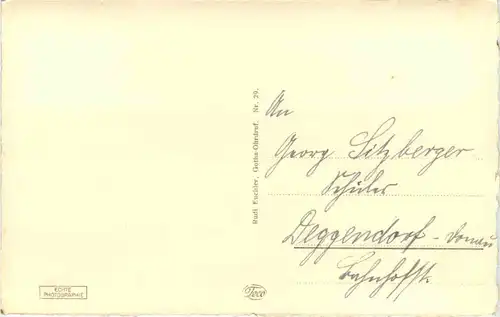 An
Georg Sitzberger
Schüler
Deggendorf - Donau
Bahnhofstr.
Rudi Euchler, Gotha-Ohrdruf. Nr. 29.
ECHTE
PHOTOGRAPHIE
Foco